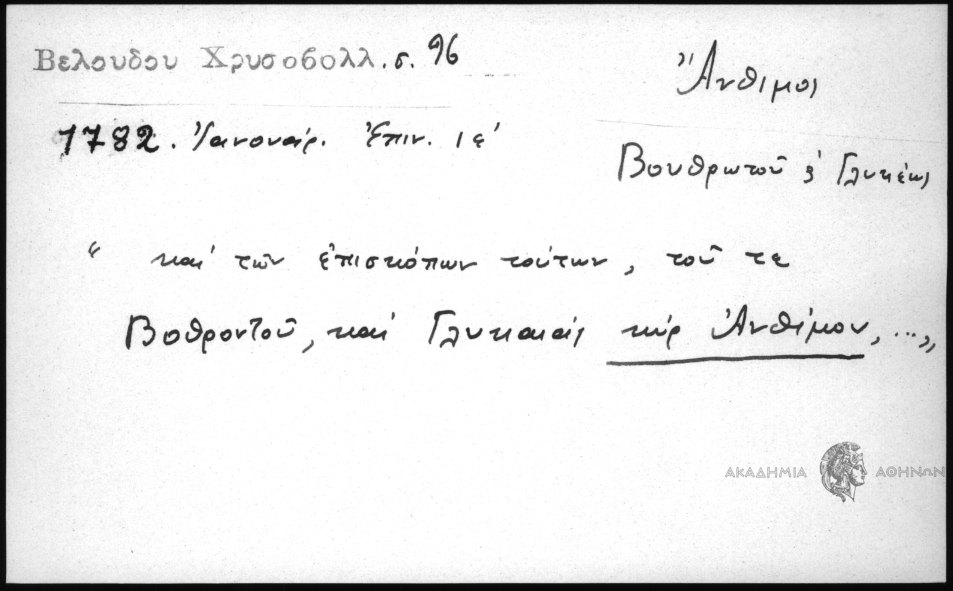 Βελουδου Χρυσοβολλ. σ. 96
Ἄνθιμος
1782. Ἰανουάρ. Ἐπιν. ιε΄
Βουθρωτοῦ & Γλυκέως
“ καί τῶν ἐπισκόπων τούτων, τοῦ τε
Βοθροντοῦ, καί Γλυκαιάς κύρ Ἀνθίμου, ...„
ΑΚΑΔΗΜΙΑ ΑΘΗΝΩΝ